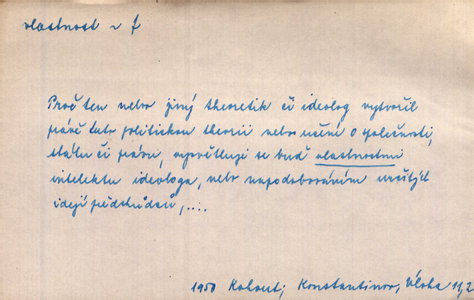 vlastnost ~ f
Proč ten nebo jiný theoretik či ideolog vytvořil
právě tuto politickou theorii nebo učení o společnosti,
státu či právu, vysvětluje se buď vlastnostmi
intelektu ideologa, nebo napodobováním určitých
idejí předchůdců,...
1950 Kolout; Konstantinov, Úloha 11,2